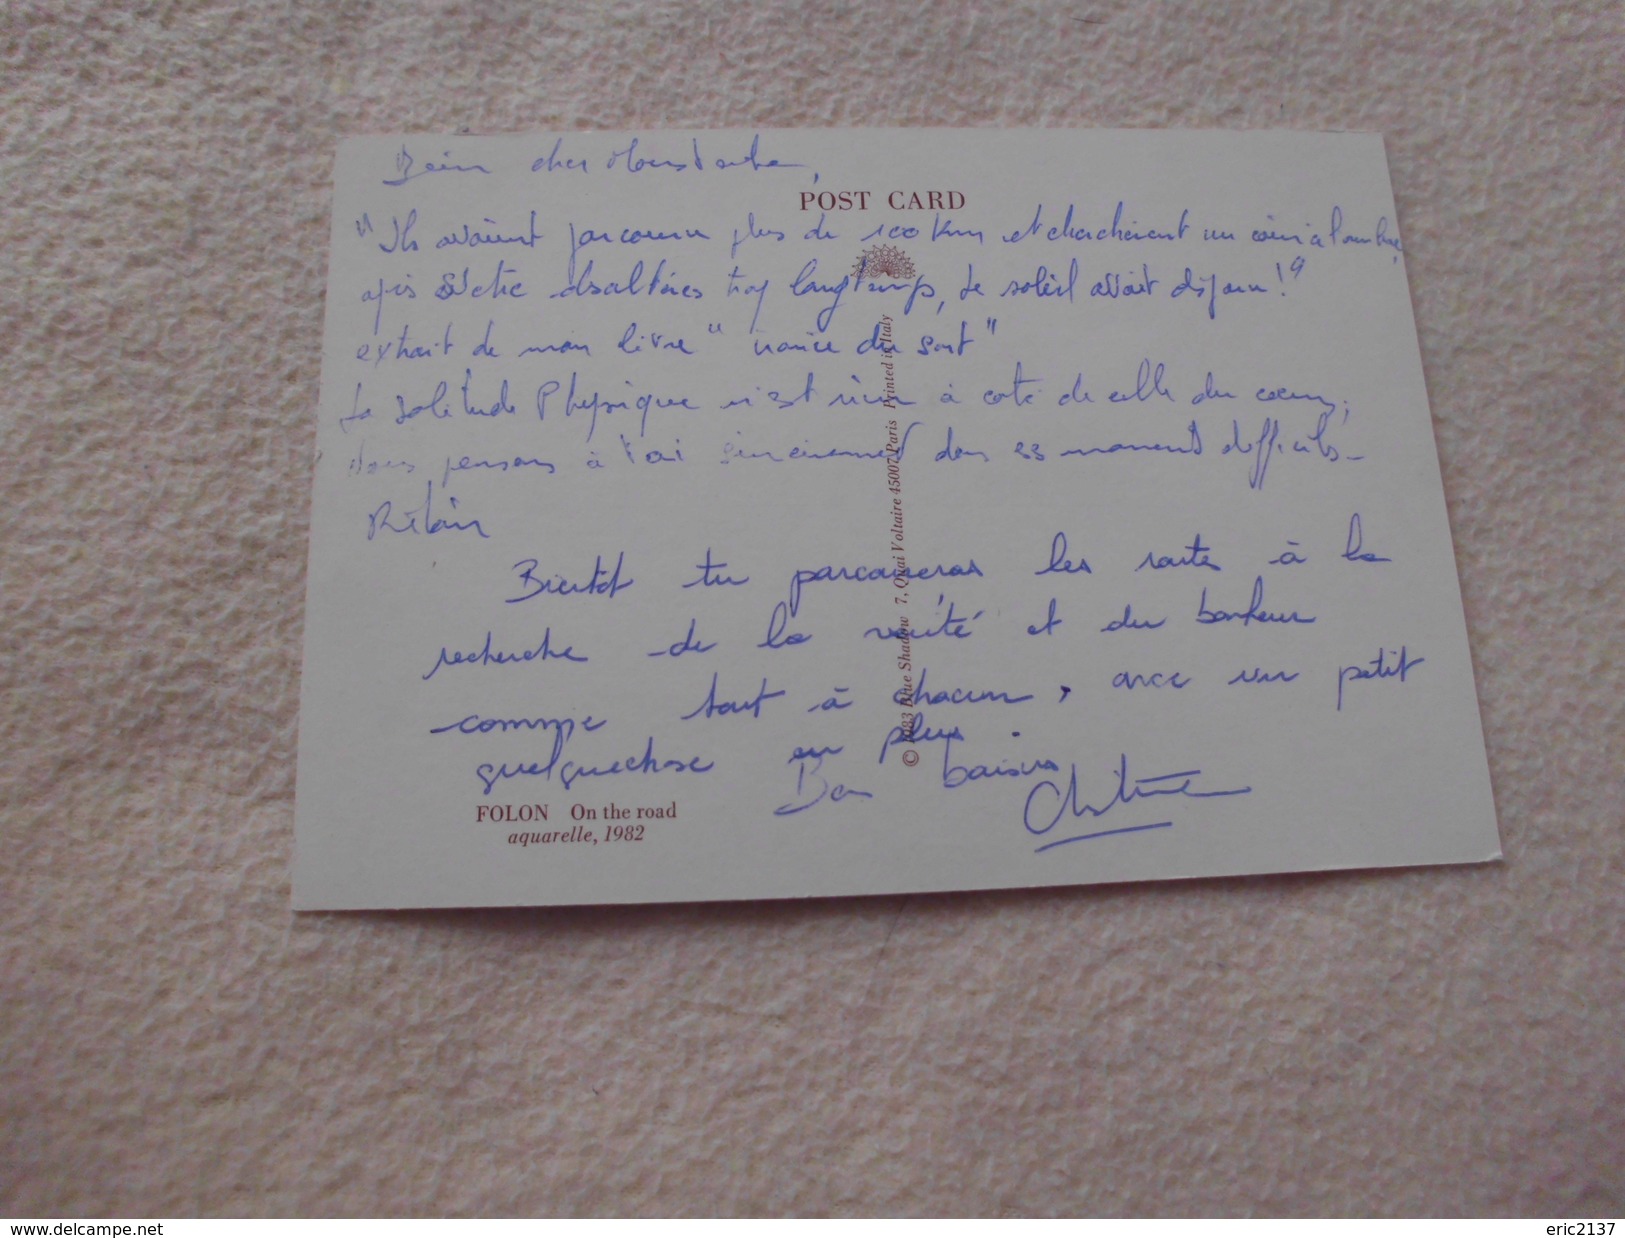 cher Moustache,
POST CARD
"Ils avaient parcouru plus de 100 km et cherchaient un coin à l'ombre,
après s'être désaltérés trop longtemps, le soleil avait disparu!"
extrait de mon livre " du sort"
La solitude Physique n'est rien à coté de celle du coeur,
Nous pensons à toi sincèrement dans ces moments difficiles -
Bientôt tu parcoureras les routes à la
recherche de la vérité et du bonheur
comme tout à chacun, avec un petit
quelquechose en plus.
Bon baisers
© 1983 Blue Shadow 7, Quai Voltaire 45007 Paris Printed in Italy
FOLON On the road
aquarelle, 1982
www.delcampe.net
eric2137